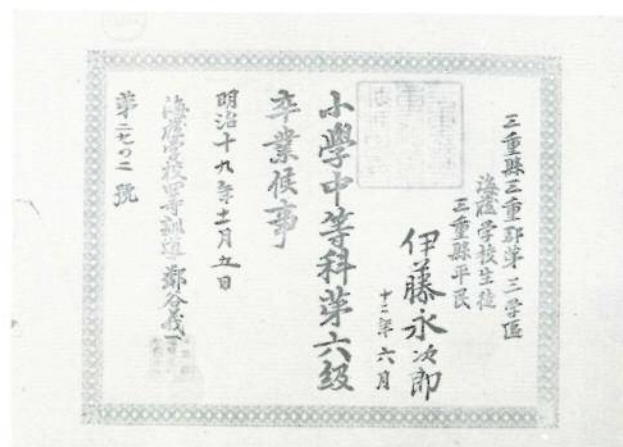 三重縣三重郡第三学區
海蔵学校生徒
三重縣平民
伊藤永次郎
十二年六月
小學中等科第六級
卒業候事
明治十九年十一月五日
海蔵学校四等訓導
第二七〇二號